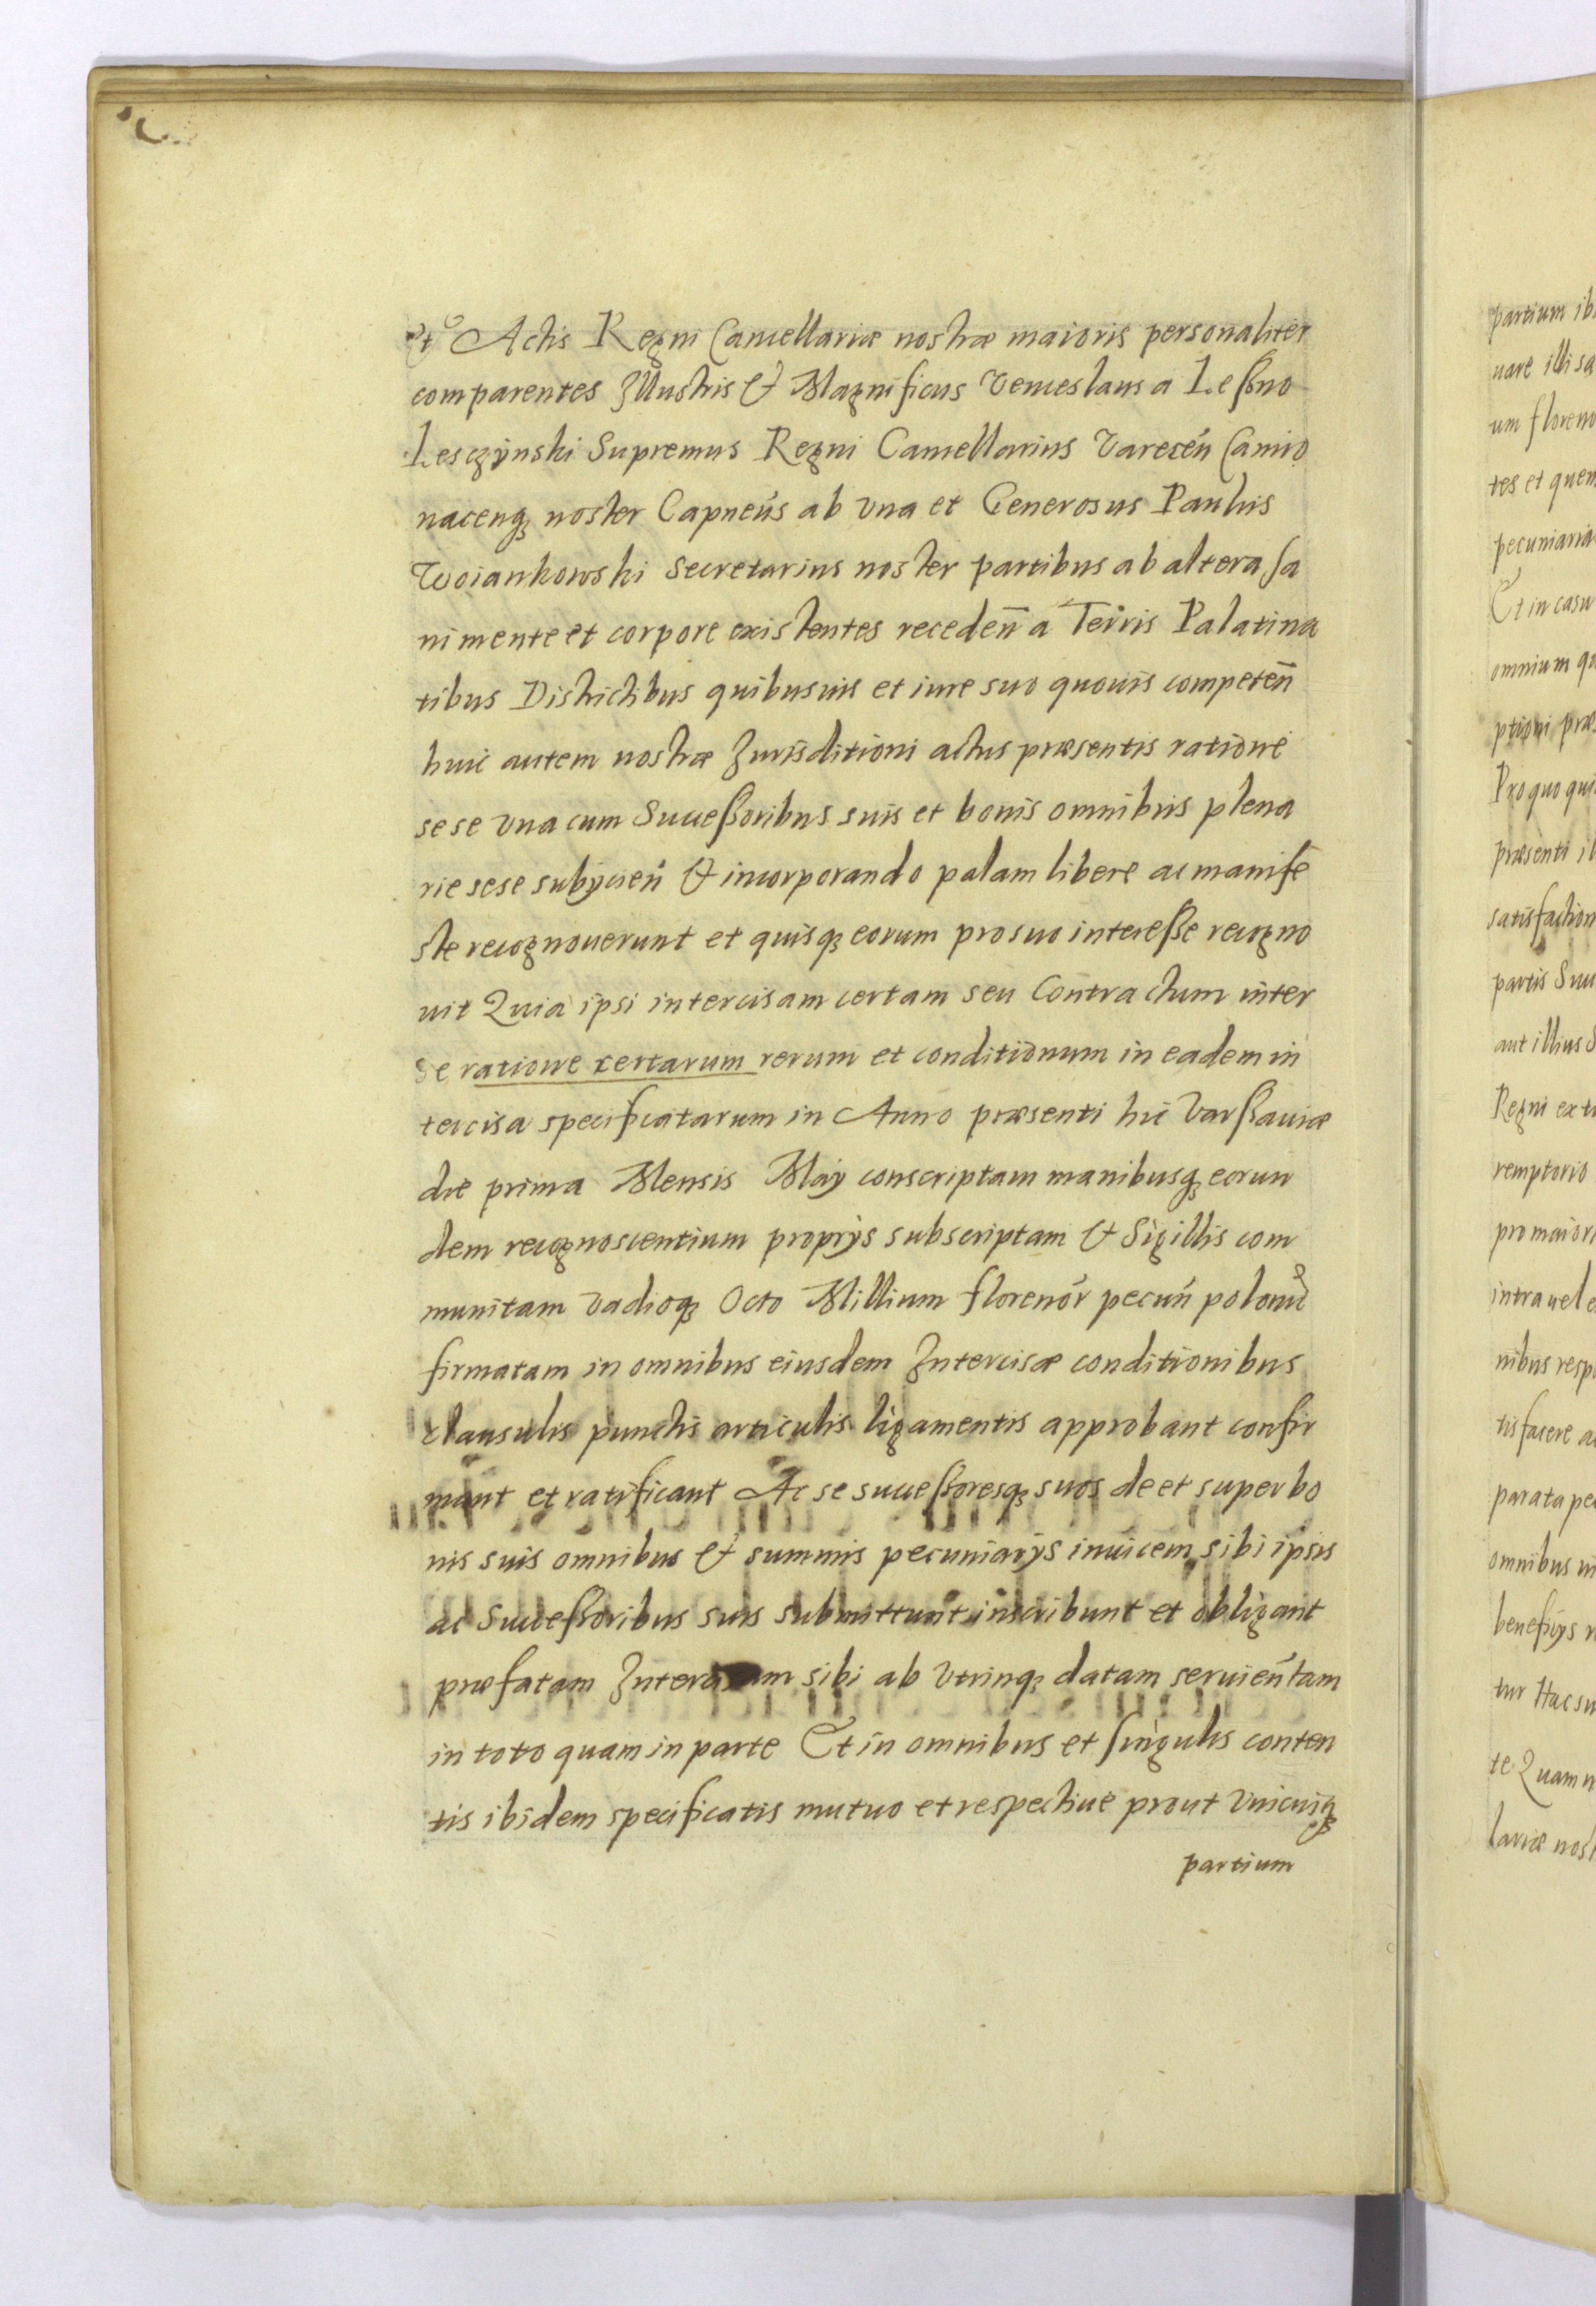 et Actis Regni Cancellariæ nostræ maioris personaliter
comparentes Illustris & Magnificus Venceslaus a Leßno
Lesczynski Supremus Regni Cancellarius Varecen̄ Camio
nacenq₃ noster Capneus ab vna et Generosus Paulus
Woiankowski Secretarius noster partibus ab altera sa
ni mente et corpore existentes receden̄ a Terris Palatina
tibus Districtibus quibusuis et iure suo quouis competen̄
huic autem nostræ Jurisditioni actus præsentis ratione
sese vna cum Succeßoribus suis et bonis omnibus plena
rie sese subÿcien̄ & incorporando palam libere ac manife
ste recognouerunt et quisq₃ eorum pro suo intereße recogno
uit Quia ipsi intercisam certam seu Contractum inter
se ratione certarum rerum et conditionum in eadem in
tercisa specificatarum in Anno præsenti hic Varßauiæ
die prima Mensis Maÿ conscriptam manibusq₃ eorun
dem recognoscentium proprÿs subscriptam & Sigillis com
munitam vadioq₃ Octo Millium florenor pecun̄ polonic
firmatam in omnibus eiusdem Intercisæ conditionibus
clausulis punctis articulis ligamentis approbant confir
mant et ratificant Ac se succeßoresq₃ suos de et super bo
nis suis omnibus & summis pecuniarÿs inuicem sibi ipsis
ac Succeßoribus suis submittunt inscribunt et obligant
præfatam sibi ab vtrinq₃ datam seruien̄ tam
in toto quam in parte Et in omnibus et singulis conten
tis ibidem specificatis mutuo et respectiue prout vnicuiq₃
partium
partium
uare illi
um floreno
tes et quem
pecuniaria
Et in casu
omnium
ptioni
Pro quo
præsenti
satisfaction
partis
aut illius
Regni
remptorio
pro maiori
intra uel
nibus
tisfacere
parata
omnibus
benefiÿs
tur Hac
te Quam
lariæ